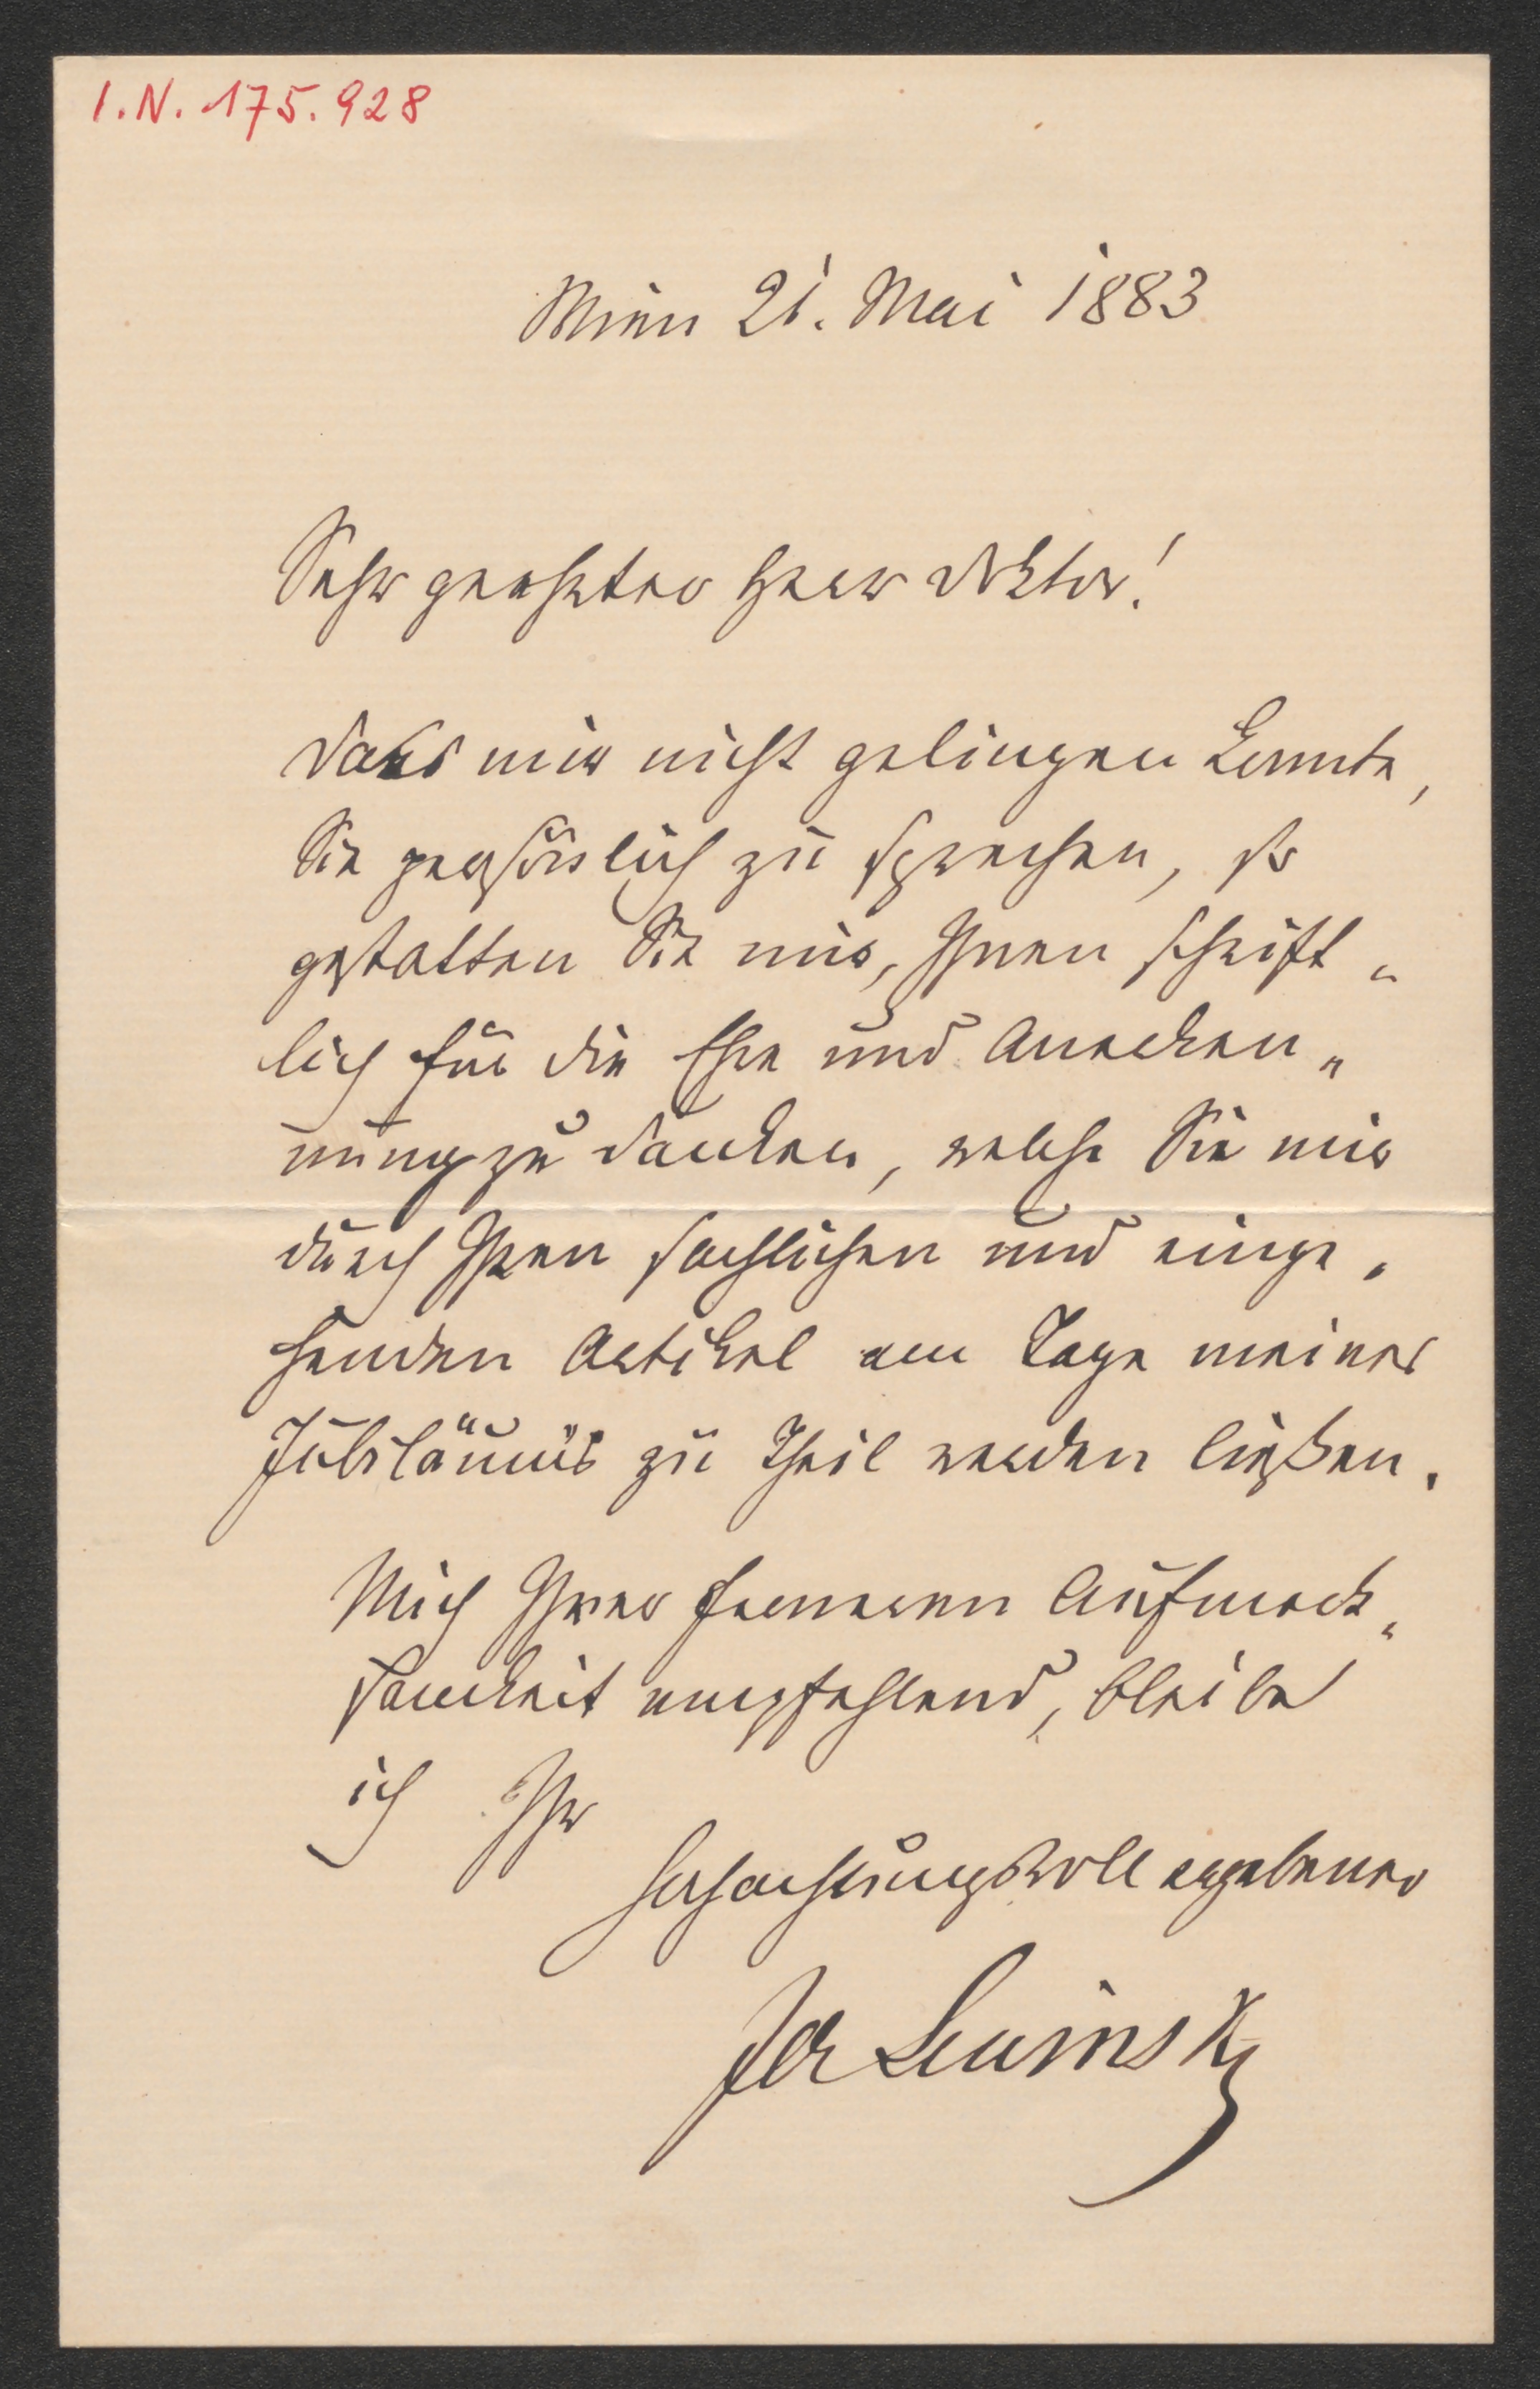 I.N. 175.928
Wien 21. Mai 1883
Sehr geehrter Herr Doktor!
Da es mir nicht gelingen konnte,
Sie persönlich zu sprechen, so
gestatten Sie mir, Ihnen schrift„
lich für die Ehre und Anerken„
nung zu danken, welche Sie mir
durch Ihren sachlichen und einge„
henden Artikel am Tage meines
Jubiläums zu Theil werden ließen.
Mich Ihrer ferneren Aufmerk„
samkeit empfehlend, bleibe
ich Ihr
hochachtungsvoll ergebener
Jos Lewinsky